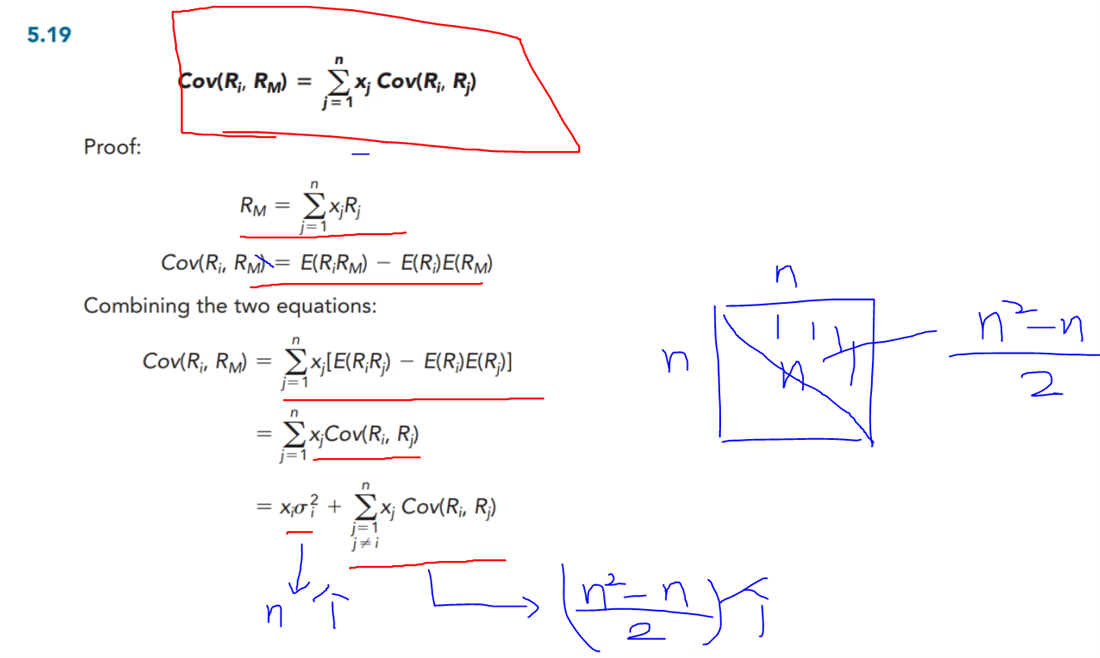 5.19
Cov(Rᵢ, R_M) = ∑ⱼ₌₁ⁿ xⱼ Cov(Rᵢ, Rⱼ)
Proof:
R_M = ∑ⱼ₌₁ⁿ xⱼRⱼ
Cov(Rᵢ, R_M) = E(RᵢR_M) − E(Rᵢ)E(R_M)
Combining the two equations:
Cov(Rᵢ, R_M) = ∑ⱼ₌₁ⁿ xⱼ[E(RᵢRⱼ) − E(Rᵢ)E(Rⱼ)]
= ∑ⱼ₌₁ⁿ xⱼCov(Rᵢ, Rⱼ)
= xᵢσᵢ² + ∑ⱼ₌₁, ⱼ≠ᵢⁿ xⱼ Cov(Rᵢ, Rⱼ)
n
n
n
(n² − n)/2
n 개
((n² − n)/2) 개